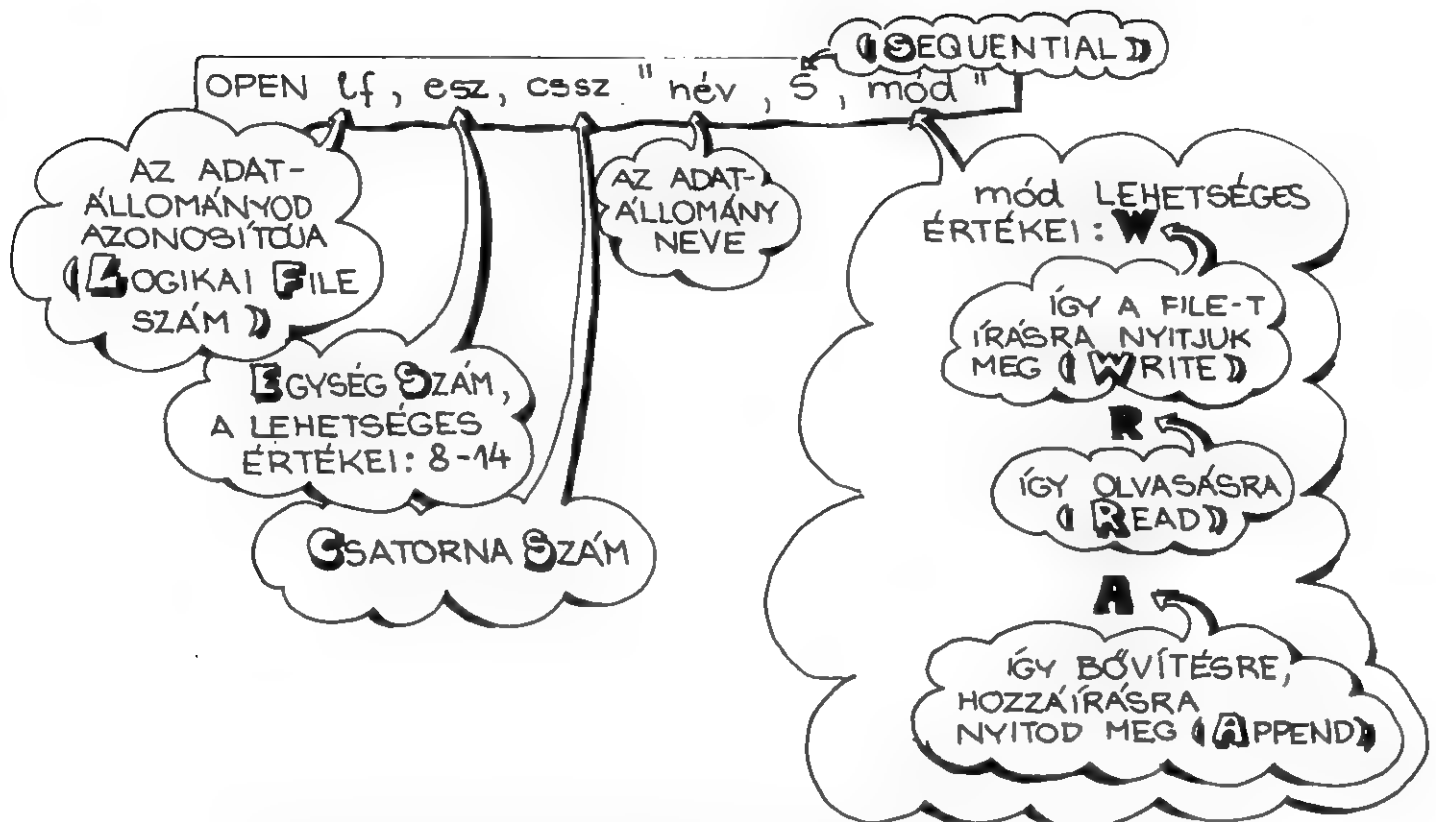 (SEQUENTIAL)
OPEN lf, esz, cssz "név, S, mód"
AZ ADAT-
ÁLLOMÁNYOD
AZONOSÍTÓJA
(LOGIKAI FILE
SZÁM)
AZ ADAT-
ÁLLOMÁNY
NEVE
EGYSÉG SZÁM,
A LEHETSÉGES
ÉRTÉKEI: 8-14
CSATORNA SZÁM
mód LEHETSÉGES
ÉRTÉKEI: W
ÍGY A FILE-T
ÍRÁSRA NYITJUK
MEG (WRITE)
R
ÍGY OLVASÁSRA
(READ)
A
ÍGY BŐVÍTÉSRE,
HOZZÁÍRÁSRA
NYITOD MEG (APPEND)